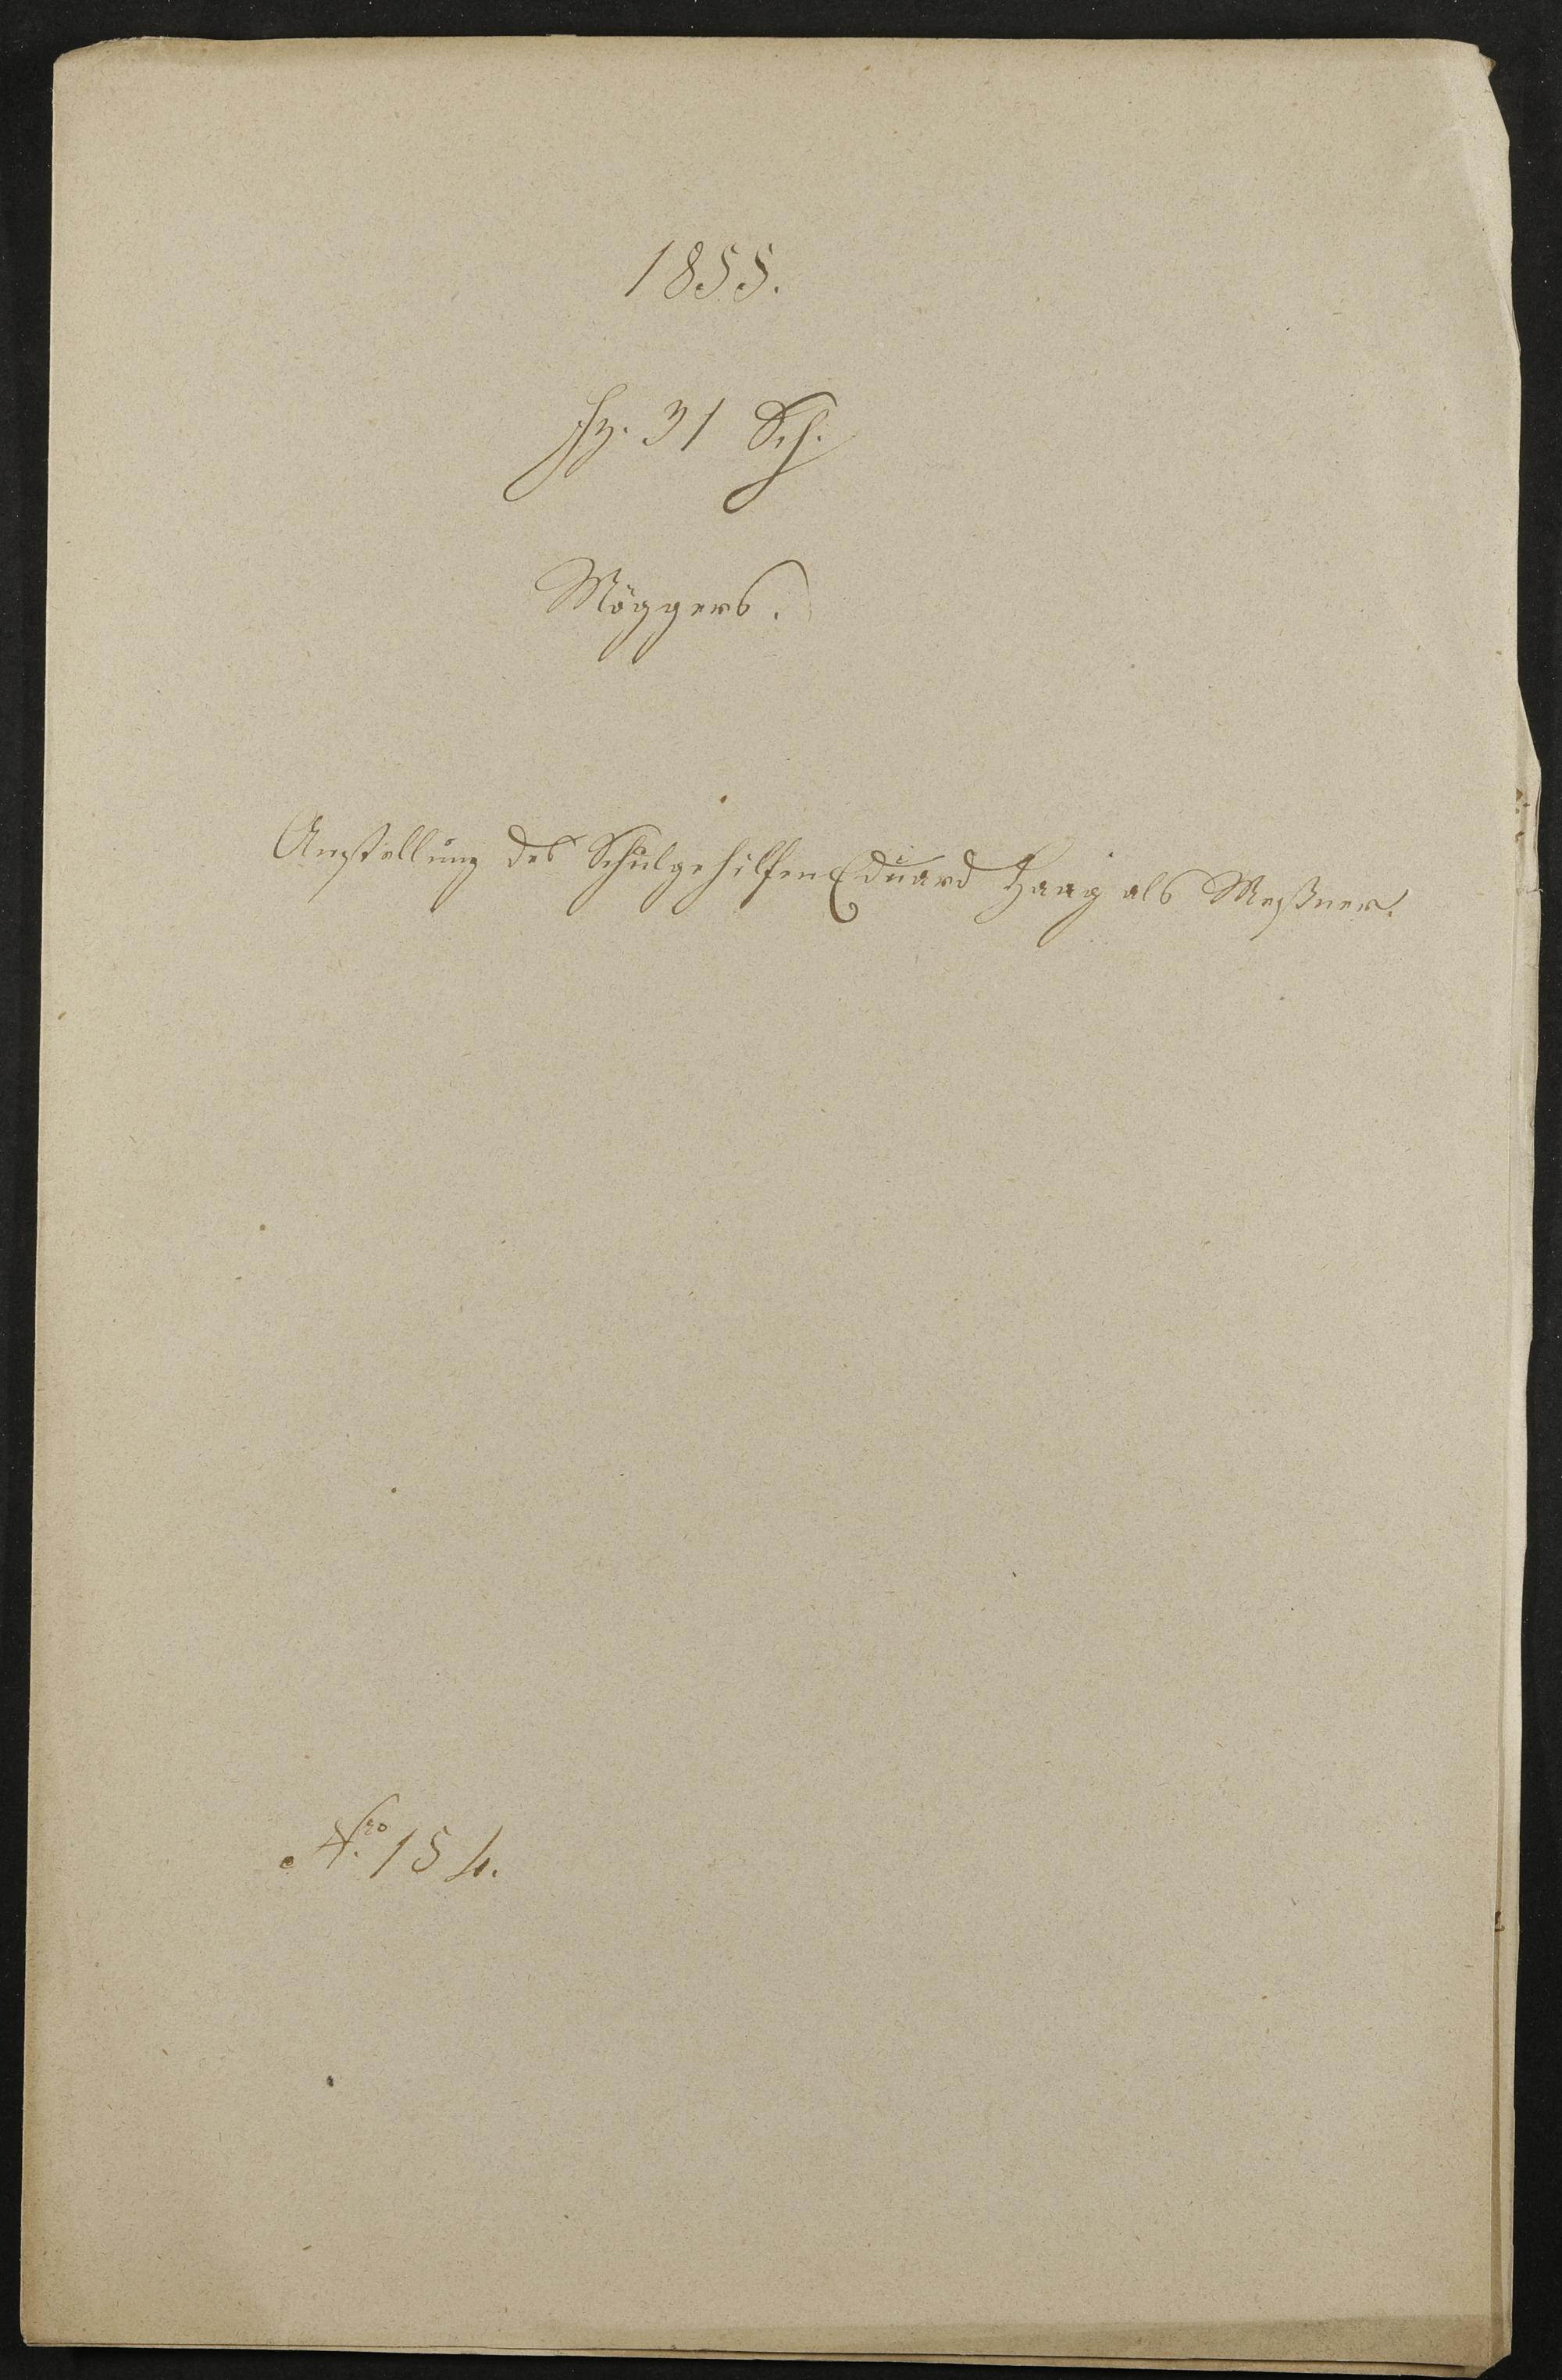 1855.
Fz. 31 Sch.
Möggers.
Anstellung des Schulgehilfen Eduard Haag als Meßner.
Nro. 154.